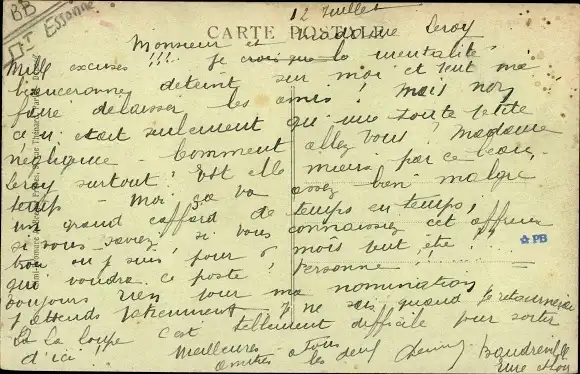 BB
Dt Essonne
12 Juillet
CARTE POSTALE
Monsieur et Madame Leroy
Mille excuses !!! Je crois que la mentalité
beauceronne déteint sur moi et veut me
faire délaisser les amis ! Mais non
ceci était seulement qu'une toute petite
négligence - Comment allez vous ? Madame
Leroy surtout ? Est elle mieux par ce beau
temps - Moi ça va assez bien malgré
un grand caffard de temps en temps,
si vous saviez si vous connaissiez cet affreux
trou où j'suis pour 6 mois peut être !
qui voudra ce poste ? Personne !!
toujours rien pour ma nomination
j'attends patiemment - Je ne sais quand je retournerai
à la loupe c'est tellement difficile pour sortir
d'ici !! Meilleures amitiés à vous
les deux
Baudreville
Eure et Loir
PB